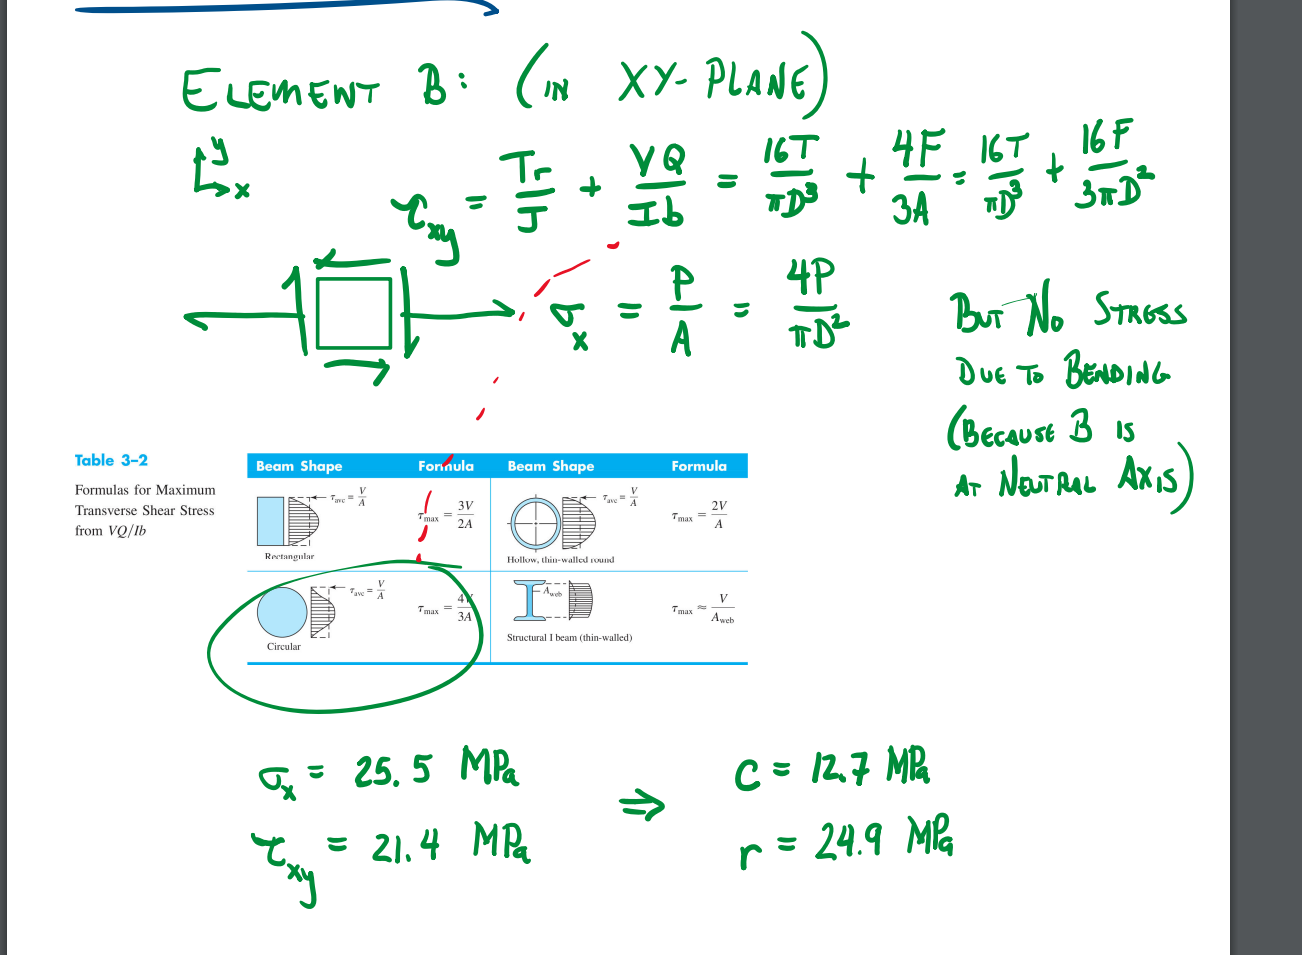 ELEMENT B: (IN XY-PLANE)
y
x
τxy = Tr/J + VQ/Ib = 16T/πD³ + 4F/3A = 16T/πD³ + 16F/3πD²
σx = P/A = 4P/πD²
BUT NO STRESS
DUE TO BENDING
(BECAUSE B IS
AT NEUTRAL AXIS)
Table 3–2
Formulas for Maximum
Transverse Shear Stress
from VQ/Ib
Beam Shape Formula Beam Shape Formula
τavc = V/A τmax = 3V/2A
Rectangular
τavc = V/A τmax = 2V/A
Hollow, thin-walled round
τavc = V/A τmax = 4V/3A
Circular
Aweb τmax ≈ V/Aweb
Structural I beam (thin-walled)
σx = 25.5 MPa
τxy = 21.4 MPa
⇒
C = 12.7 MPa
r = 24.9 MPa